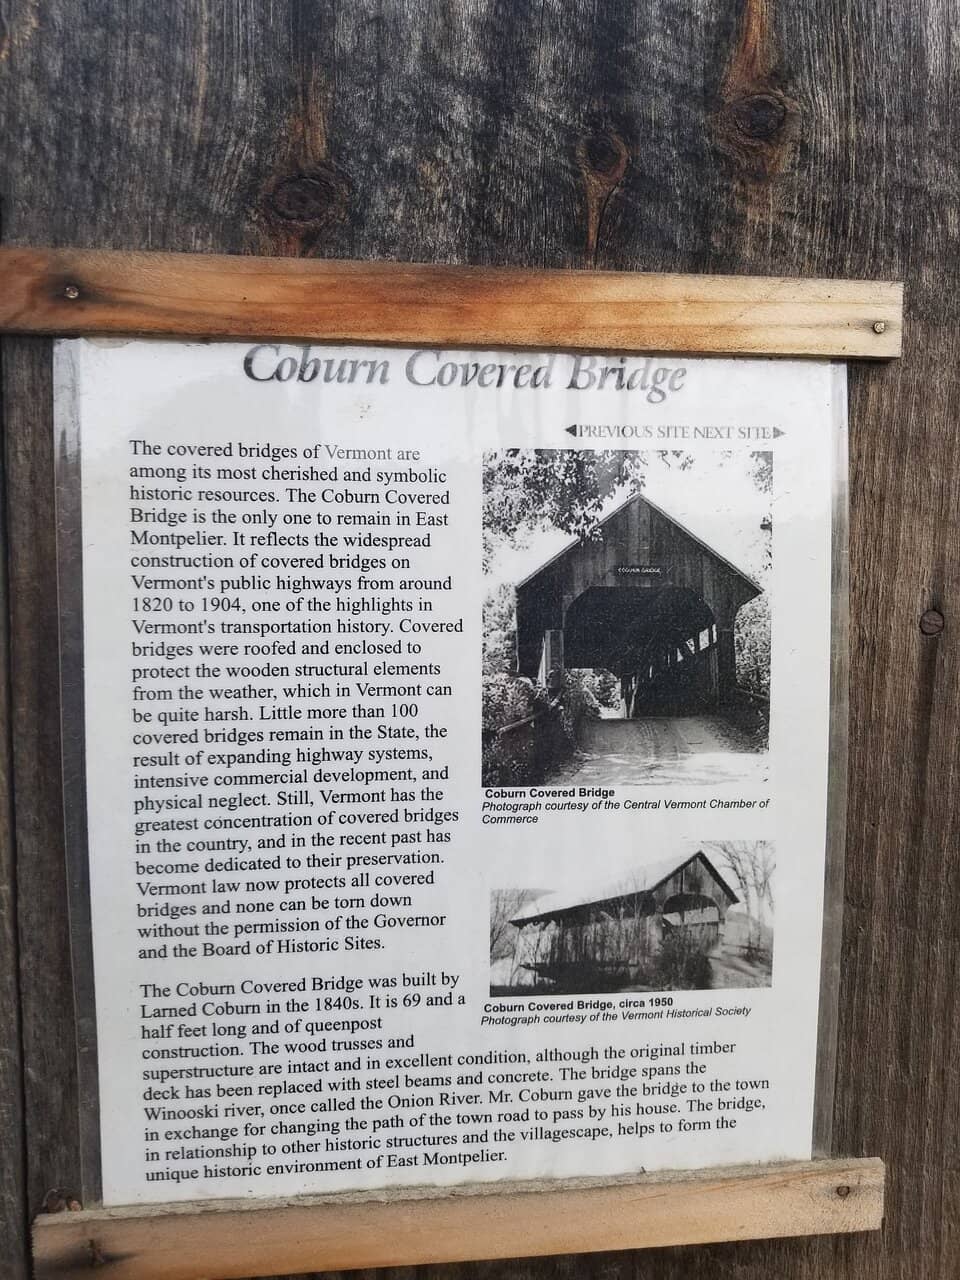 Coburn Covered Bridge
◄PREVIOUS SITE NEXT SITE►
The covered bridges of Vermont are
among its most cherished and symbolic
historic resources. The Coburn Covered
Bridge is the only one to remain in East
Montpelier. It reflects the widespread
construction of covered bridges on
Vermont's public highways from around
1820 to 1904, one of the highlights in
Vermont's transportation history. Covered
bridges were roofed and enclosed to
protect the wooden structural elements
from the weather, which in Vermont can
be quite harsh. Little more than 100
covered bridges remain in the State, the
result of expanding highway systems,
intensive commercial development, and
physical neglect. Still, Vermont has the
greatest concentration of covered bridges
in the country, and in the recent past has
become dedicated to their preservation.
Vermont law now protects all covered
bridges and none can be torn down
without the permission of the Governor
and the Board of Historic Sites.
COBURN BRIDGE
Coburn Covered Bridge
Photograph courtesy of the Central Vermont Chamber of
Commerce
Coburn Covered Bridge, circa 1950
Photograph courtesy of the Vermont Historical Society
The Coburn Covered Bridge was built by
Larned Coburn in the 1840s. It is 69 and a
half feet long and of queenpost
construction. The wood trusses and
superstructure are intact and in excellent condition, although the original timber
deck has been replaced with steel beams and concrete. The bridge spans the
Winooski river, once called the Onion River. Mr. Coburn gave the bridge to the town
in exchange for changing the path of the town road to pass by his house. The bridge,
in relationship to other historic structures and the villagescape, helps to form the
unique historic environment of East Montpelier.